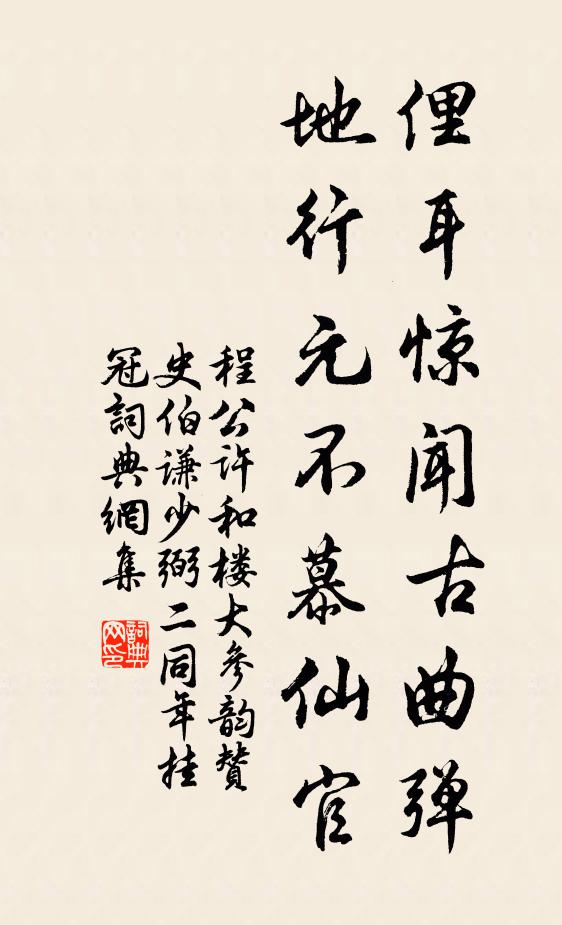 俚耳惊闻古曲弹
地行元不慕仙官
程公许和楼大参韵赞
史伯谦少弼二同年挂
冠詞典網集
詞典
网印